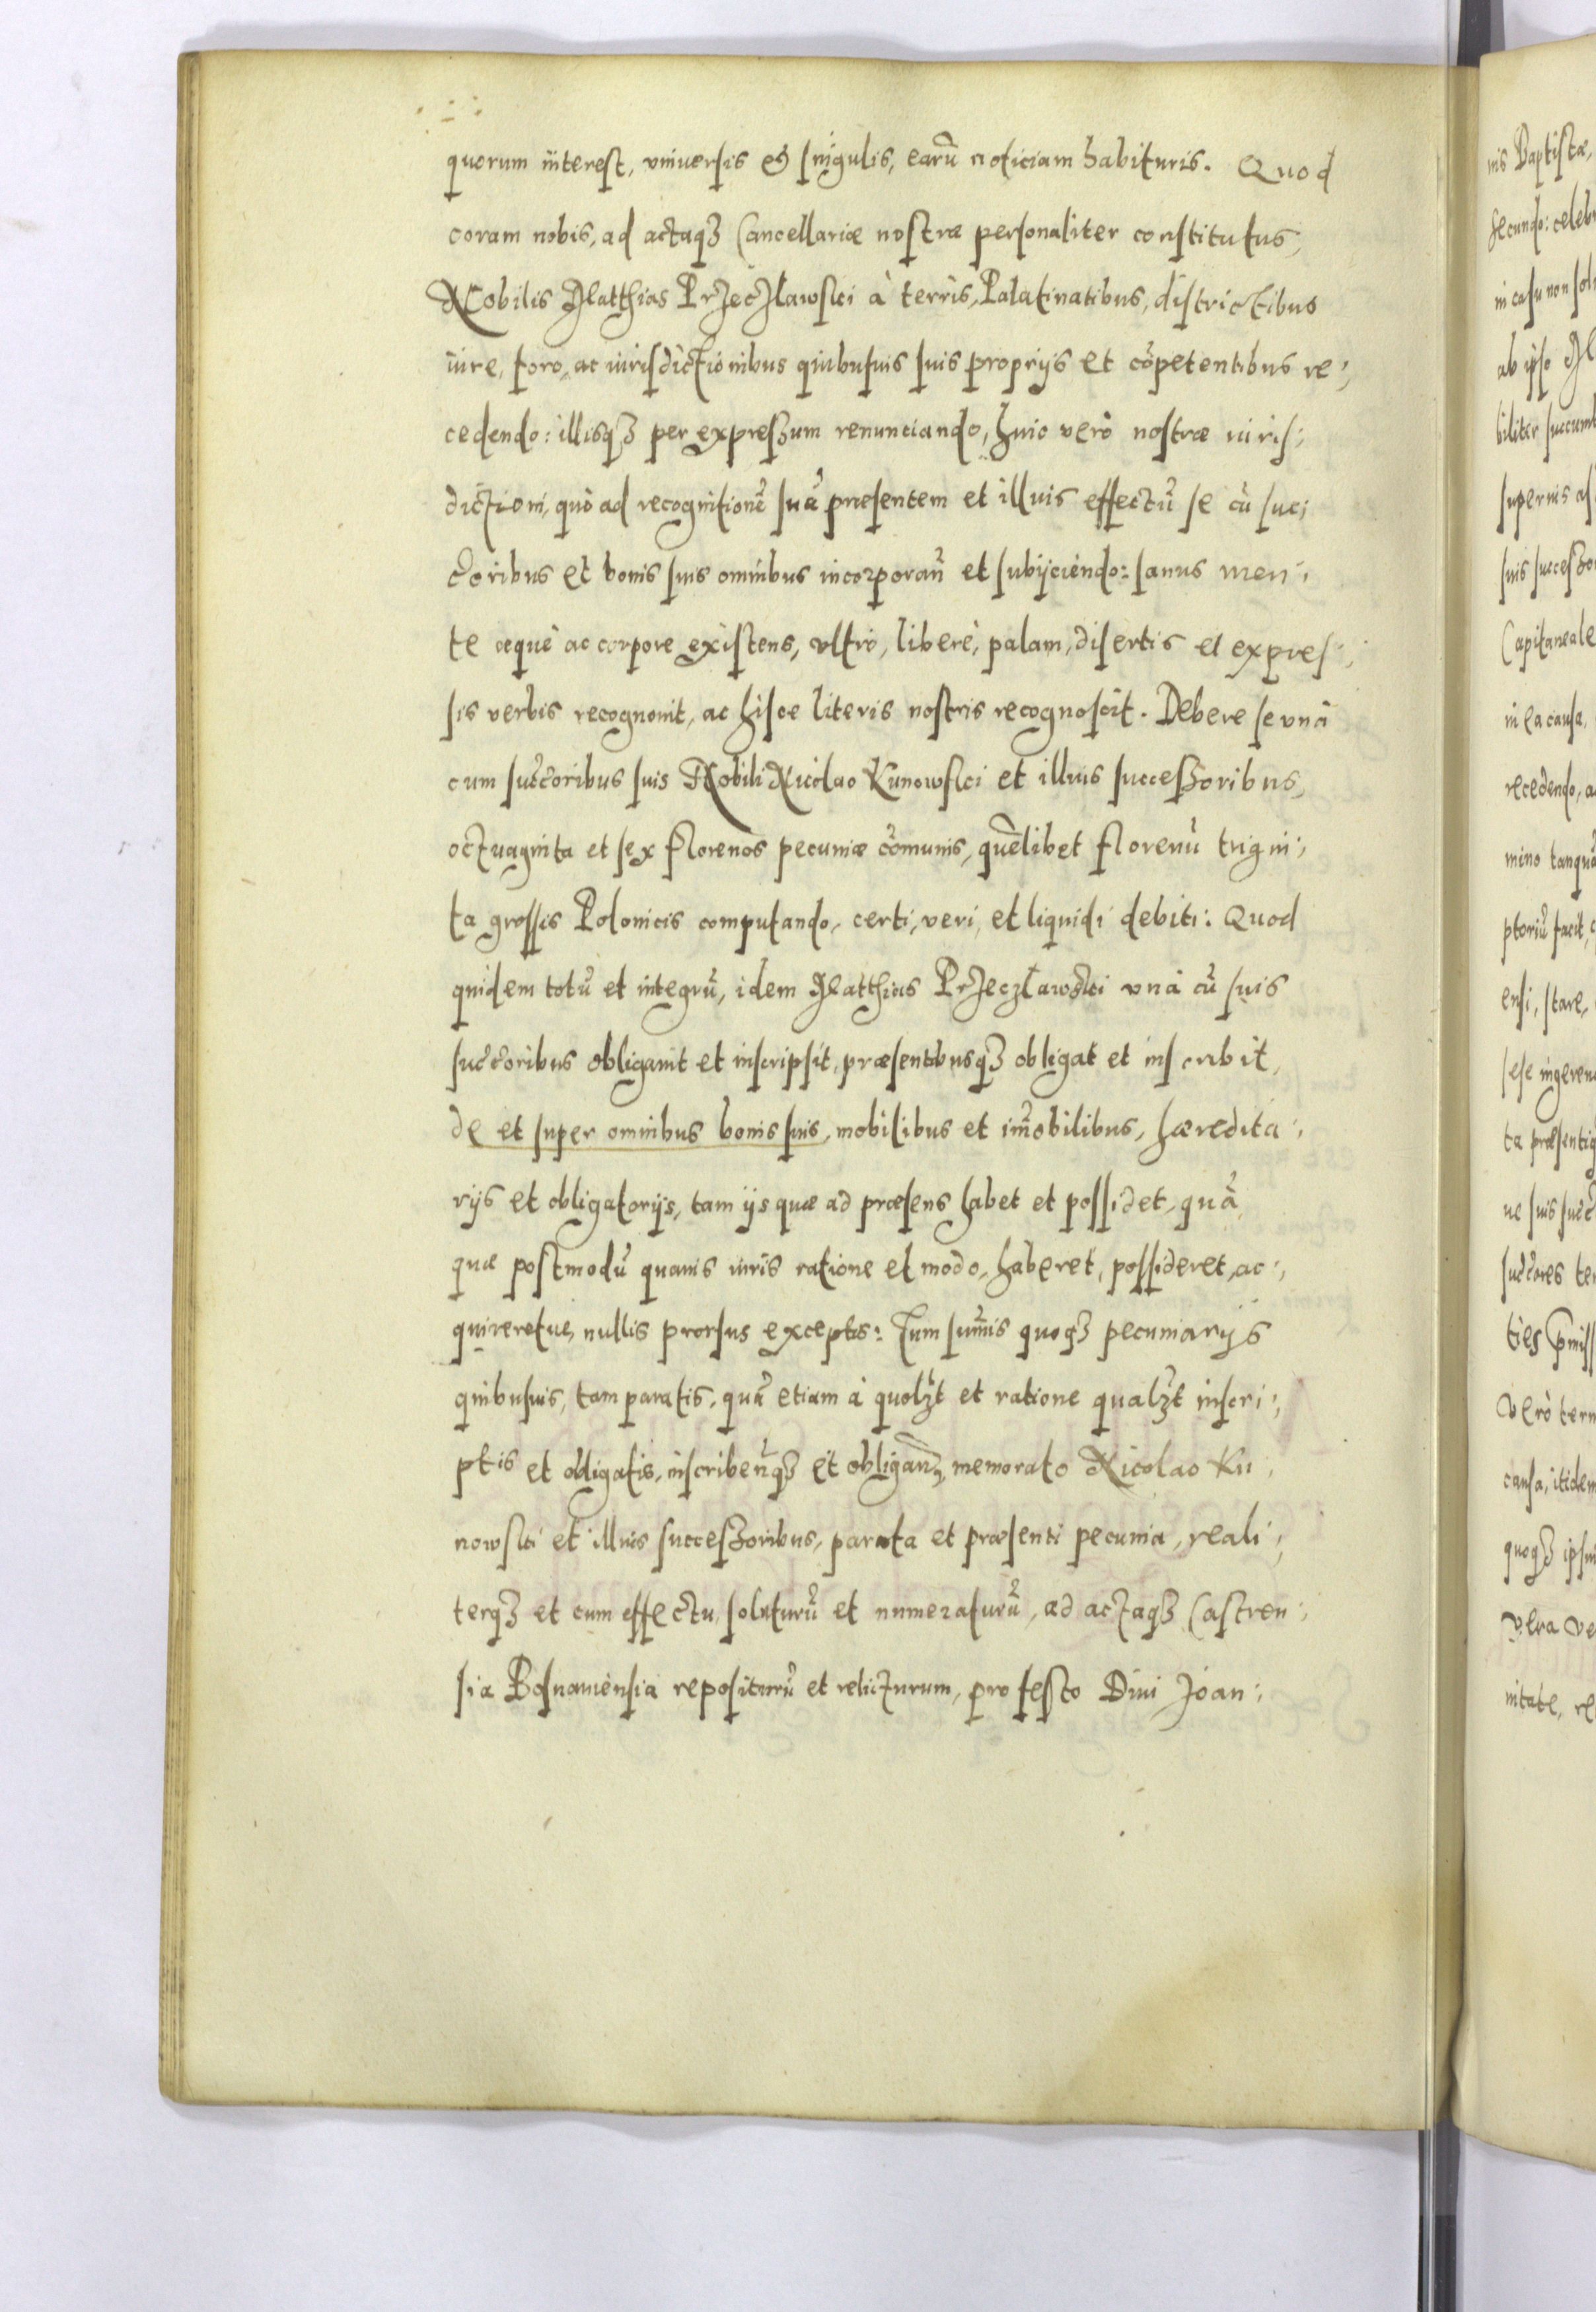 quorum interest, vniuersis et singulis, earũ noticiam habituris. Quod
coram nobis, ad actaqȝ Cancellariæ nostræ personaliter constitutus,
Nobilis Matthias Przeczlawski à terris, Palatinatibus, districtibus
iure, foro, ac iurisdictionibus quibusuis suis proprijs et cõpetentibus re:
cedendo: illisqȝ per expressum renunciando, huic verò nostræ iuris:
dictioni, quò ad recognitionẽ suã præsentem et illius effectũ se cũ suc:
c̃oribus et bonis suis omnibus incorporan̄ et subijciendo: sanus men:
te æquè ac corpore existens, vltrò, liberè, palam, disertis et expres:
sis verbis recognouit, ac hisce literis nostris recognoscit. Debere se vnà
cum succ̃oribus suis Nobili Nicolao Kunowski et illius successoribus,
octuaginta et sex florenos pecuniæ cõmunis, quẽlibet florenũ trigin:
ta grossis Polonicis computando, certi, veri, et liquidi debiti: Quod
quidem totũ et integrũ, idem Matthias Przeczławski vnà cũ suis
succ̃oribus obligauit et inscripsit, præsentibusqȝ obligat et inscribit,
de et super omnibus bonis suis, mobilibus et im̃obilibus, hæredita:
rijs et obligatorijs, tam ijs quæ ad præsens habet et possidet, quã
quæ postmodũ quauis iuris ratione et modo, haberet, possideret, ac:
quireretue, nullis prorsus exceptis: Tum sum̃is quoqȝ pecuniarijs
quibusuis, tam paratis, quã etiam à quolȝt et ratione qualȝt inscri:
ptis et obligatis, inscriben̄qȝ et obligan̄, memorato Nicolao Ku:
nowski et illius successoribus, parata et præsenti pecunia, reali:
terqȝ et cum effectu, soluturũ et numeraturũ, ad actaqȝ Castren:
sia Posnaniensia repositurũ et relicturum, pro festo Diui Joan:
nis Baptistæ,
in casu non
ab ipso
in ea causa,
recedendo,
mino tanquã
ensi, stare,
ne suis
verò
causa, itidem